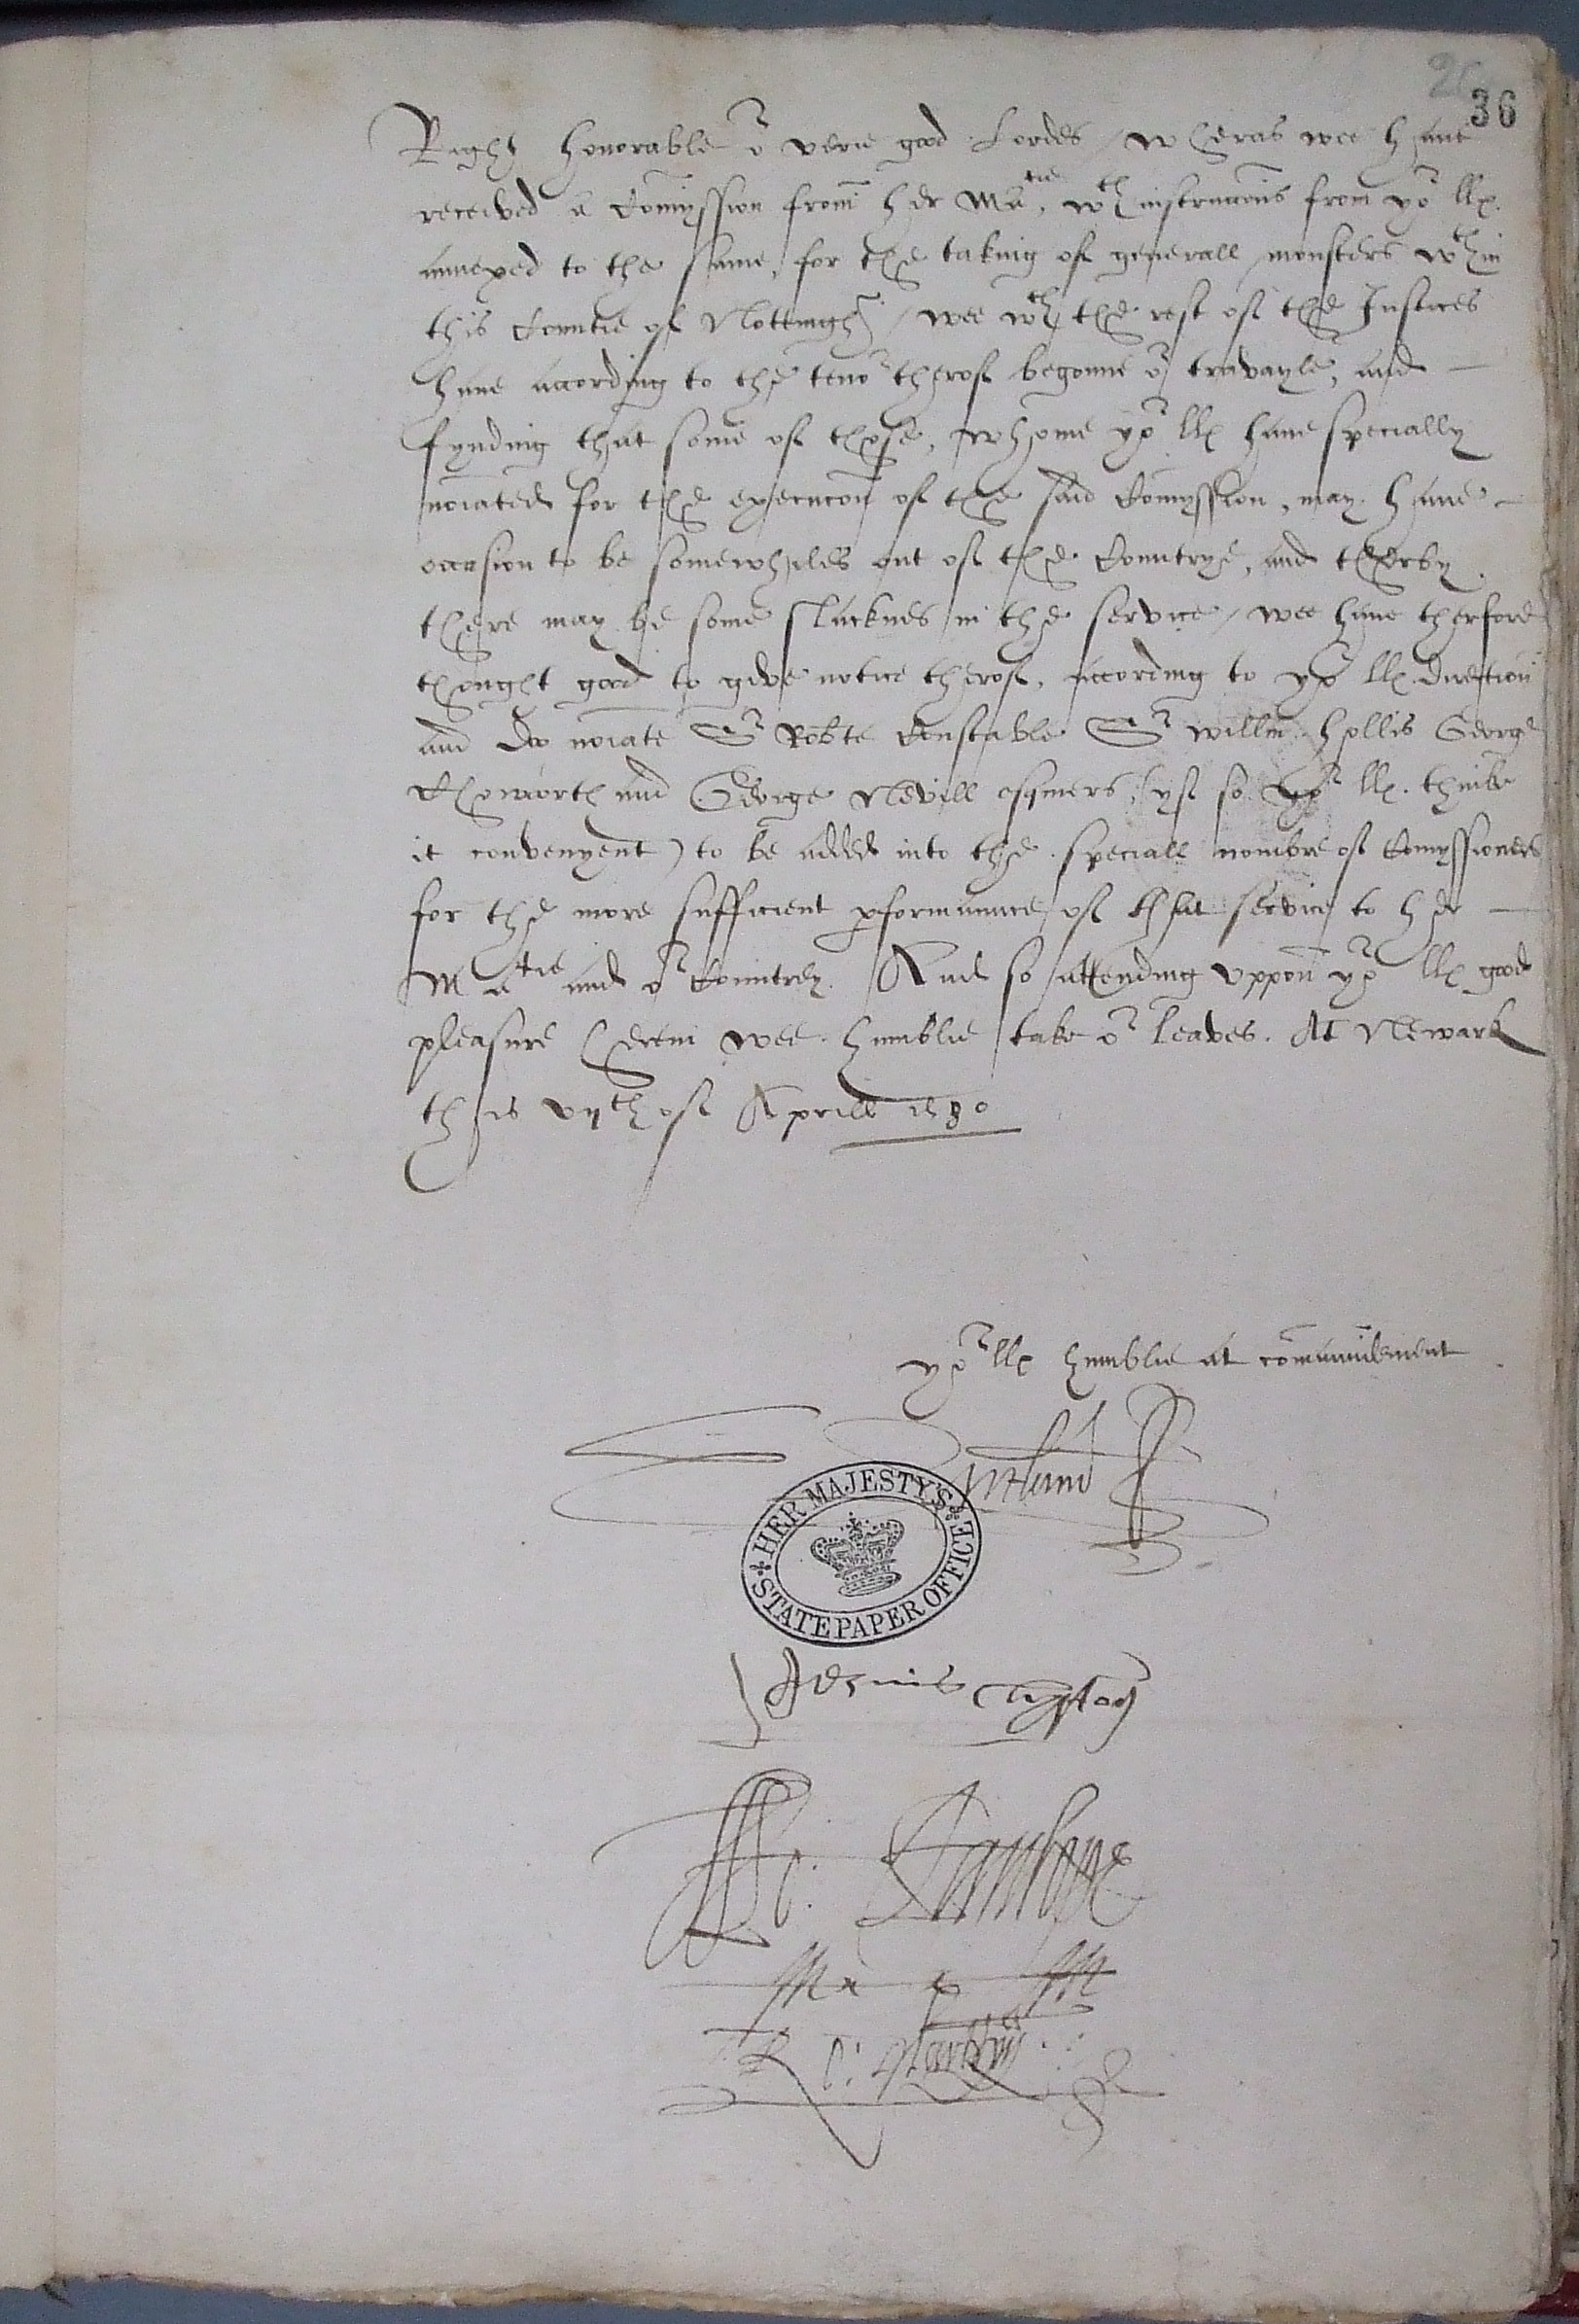 36
Right honorable o^r verie good Lordes / wheras wee haue
received a Comyssion from her Ma^tie, w^th instruccons from yo^r llp.
annexed to the same, for the taking of generall monsters w^thin
this Countie of Nottingh^m / wee w^th the rest of the Iustices
haue according to the teno^r therof begonne o^r travayle, and
fynding that some of those, whome yo^r llp haue specially
noiated for the execucon of the said Comyssion, may haue
occasion to be somewhiles out of the Countrye, and therby
there may be some slacknes in the service / wee haue therfore
thought good to give notice therof, according to yo^r llp. direction
and do noiate S^r Robte Constable S^r Willm Hollis George
Chaworth and George Nevill esquiers, (yf so yo^r llp. thinke
it convenyent) to be added into the speciall nombre of Comyssioners
for the more sufficient pformaunce of that service to her
Ma^tie and o^r Countrey. And so attending vppon yo^r llp good
pleasure herein wee humblie take o^r leaves. At Newark
this vij^th of Aprill 1580
yo^r llp humblie at comaundement
Rutland
HER MAJESTY'S STATE PAPER OFFICE
Jervis Clyfton
R: Markham